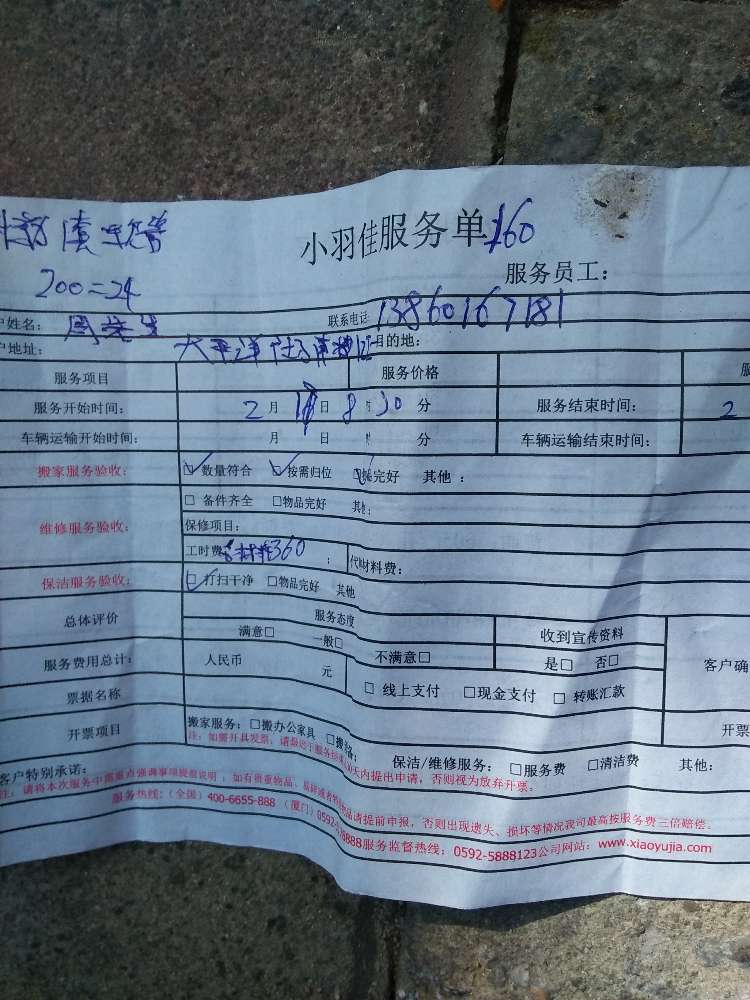 小羽佳服务单 160
200=24
服务员工：
户姓名： 周先生 联系电话 13860167181
户地址： 太平洋 目的地：
服务项目 服务价格
服务开始时间： 2月 日8 30分 服务结束时间： 2
车辆运输开始时间： 月 日 分 车辆运输结束时间：
搬家服务验收： 数量符合 按需归位 完好 其他：
维修服务验收： □ 备件齐全 □物品完好 其他：
保修项目：
工时费 360 ； 代购材料费：
保洁服务验收： □打扫干净 □物品完好 其他
总体评价 服务态度 收到宣传资料
满意□ 一般□ 不满意□ 是□ 否□ 客户确
服务费用总计： 人民币 元 □ 线上支付 □现金支付 □ 转账汇款
票据名称
开票项目 搬家服务：□搬办公家具 □搬 保洁/维修服务：□服务费 □清洁费 其他： 开票
注：如需开具发票，请 天内提出申请，否则视为放弃开票。
客户特别承诺：
注：请将本次服务中需重点强调事项提前说明；如有贵重物品、易碎 物品请提前申报，否则出现遗失、损坏等情况我司最高按服务费三倍赔偿。
服务热线：（全国）400-6655-888（厦门）0592- 8888服务监督热线：0592-5888123公司网站：www.xiaoyujia.com